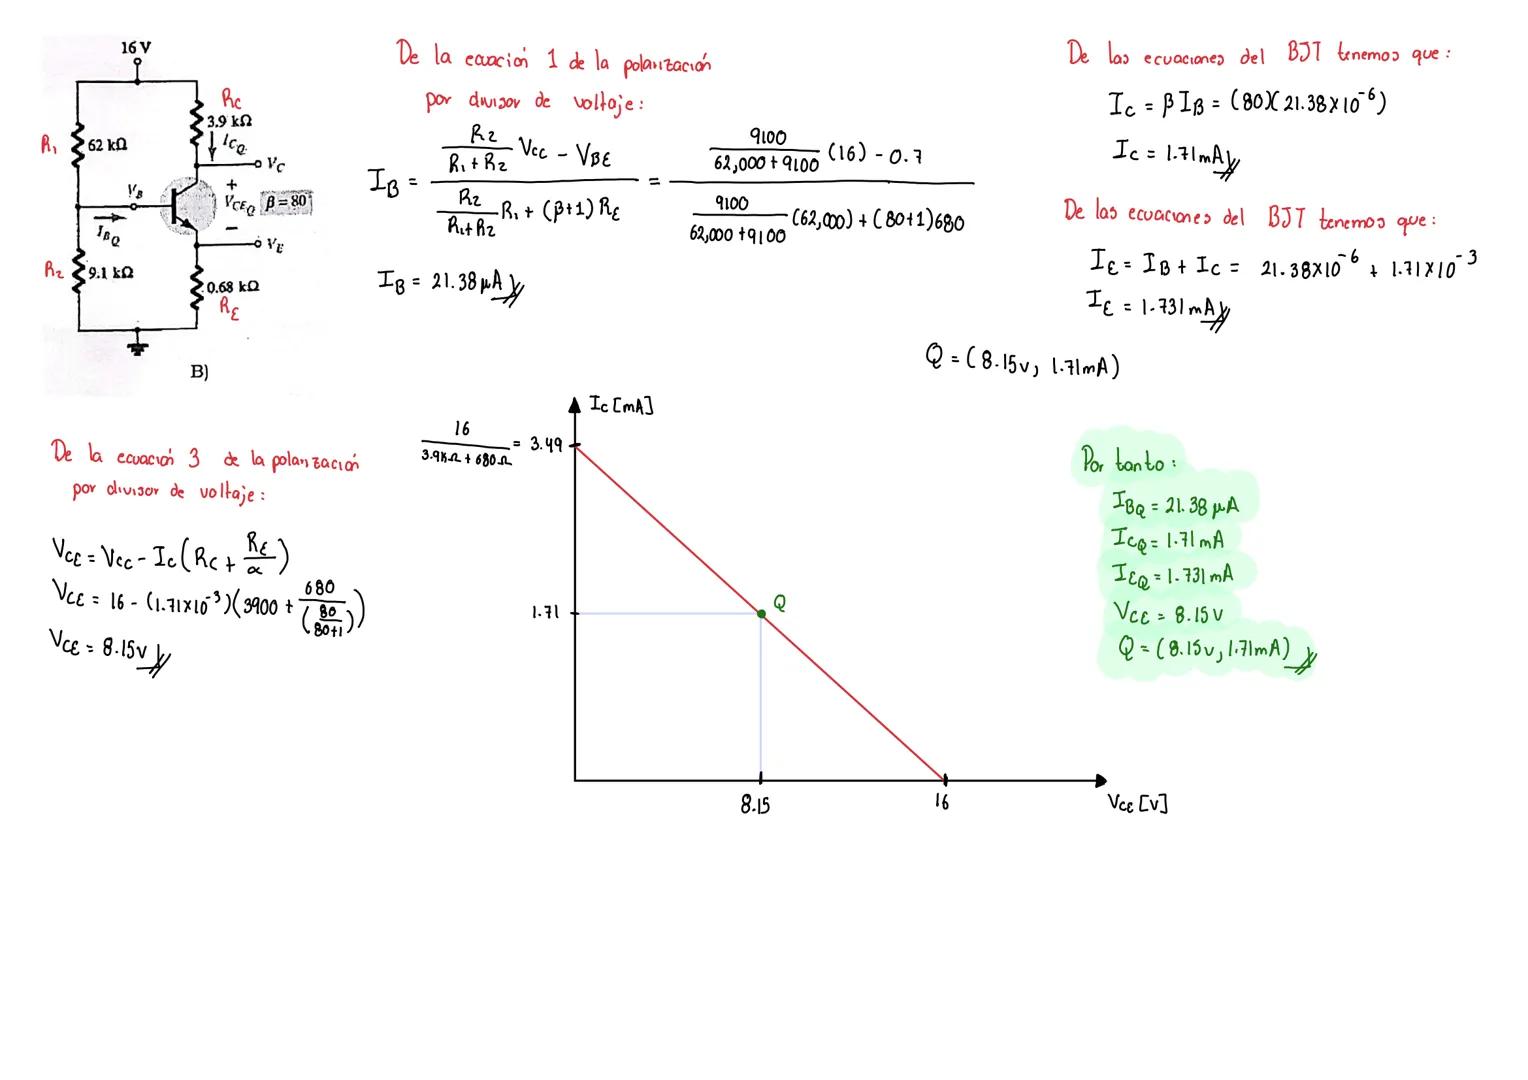 16 V
R₁
62 kΩ
Rc
3.9 kΩ
I_CQ
V_C
V_B
I_BQ
+
V_CEQ
β = 80
−
V_E
R₂
9.1 kΩ
0.68 kΩ
R_E
B)
De la ecuación 1 de la polarización
por divisor de voltaje:
I_B = (R₂/(R₁+R₂) Vcc − V_BE) / (R₂/(R₁+R₂) R₁ + (β+1) R_E) = (9100/(62,000+9100) (16) − 0.7) / (9100/(62,000+9100) (62,000) + (80+1)680)
I_B = 21.38 μA
De las ecuaciones del BJT tenemos que:
I_C = β I_B = (80)(21.38×10⁻⁶)
I_C = 1.71mA
De las ecuaciones del BJT tenemos que:
I_E = I_B + I_C = 21.38×10⁻⁶ + 1.71×10⁻³
I_E = 1.731mA
Q = (8.15v, 1.71mA)
De la ecuación 3 de la polarización
por divisor de voltaje:
V_CE = Vcc − I_C (R_C + R_E/α)
V_CE = 16 − (1.71×10⁻³)(3900 + 680/(80/(80+1)))
V_CE = 8.15v
I_C [mA]
16/(3.9KΩ + 680Ω) = 3.49
1.71
Q
8.15
16
V_CE [v]
Por tanto:
I_BQ = 21.38 μA
I_CQ = 1.71 mA
I_EQ = 1.731 mA
V_CE = 8.15 v
Q = (8.15v, 1.71mA)